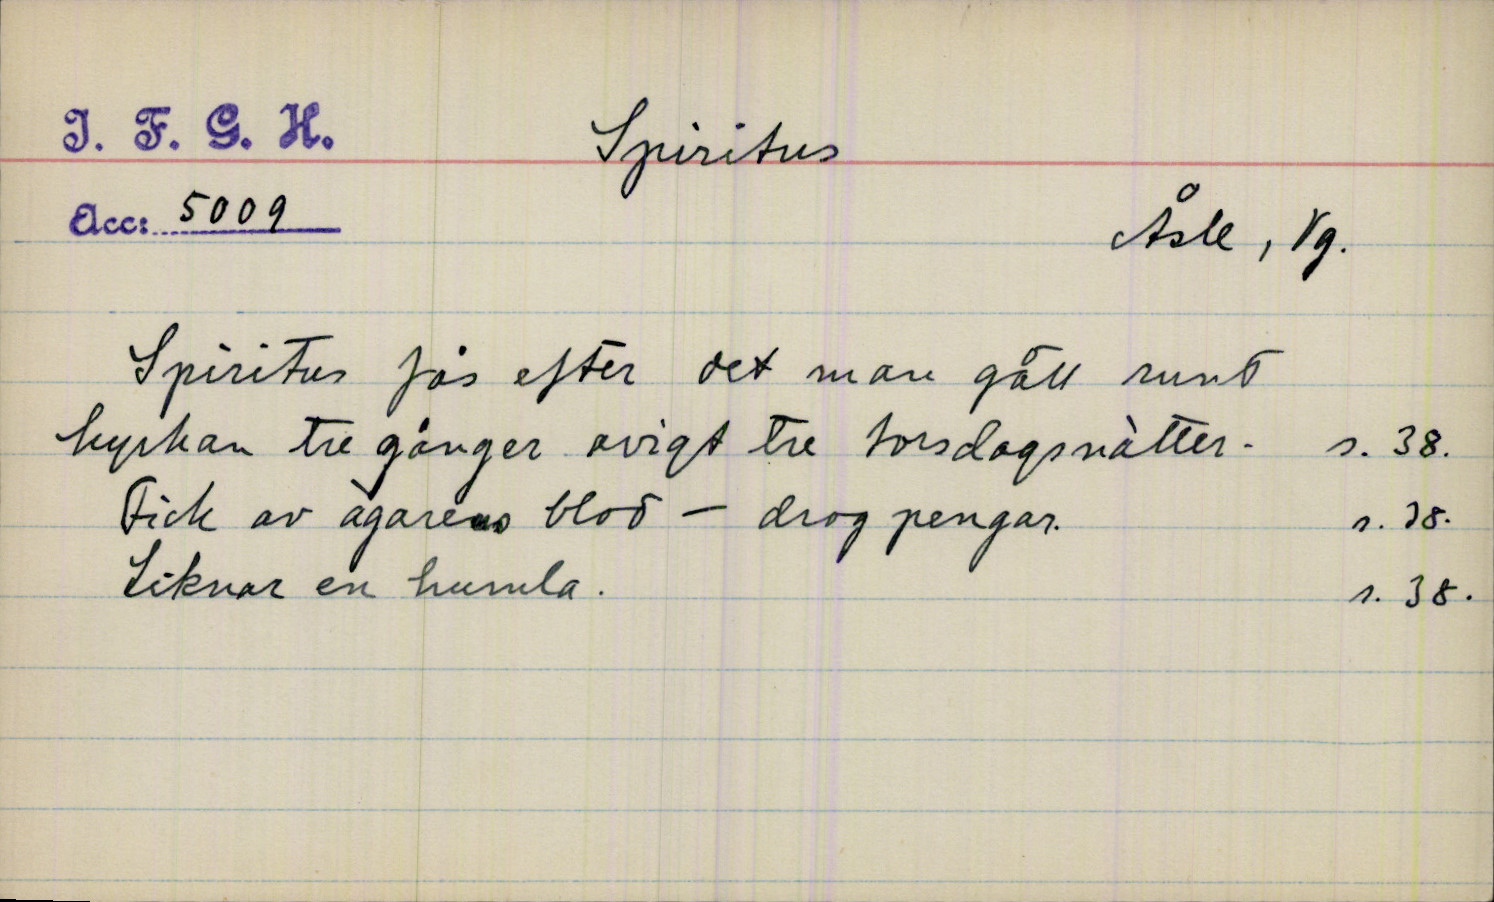 I. F. G. H.
Spiritus
Acc: 5009
Åsle, Vg.
Spiritus fås efter det man gått runt
kyrkan tre gånger avigt tre torsdagsnätter. s. 38.
Fick av ägarens blod – drog pengar. s. 38.
Liknar en humla. s. 38.